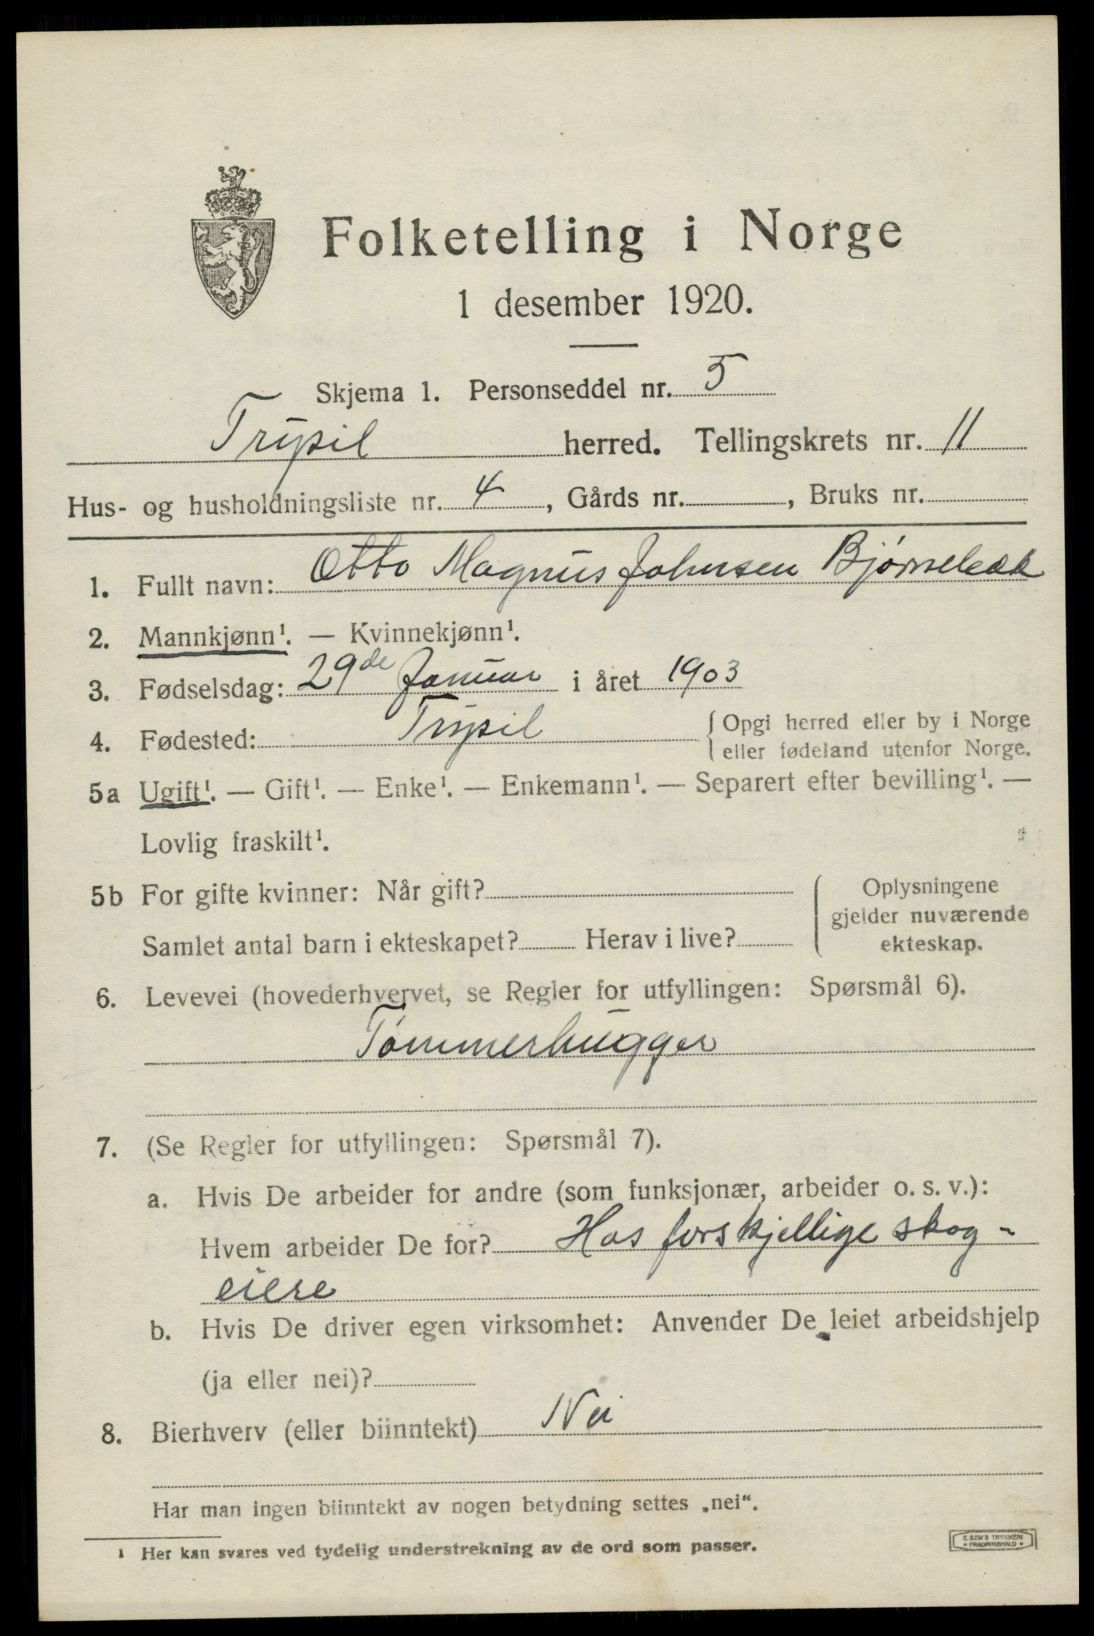 Folketelling i Norge
1 desember 1920.
Skjema 1. Personseddel nr. 5
Trysil herred. Tellingskrets nr. 11
Hus- og husholdningsliste nr. 4, Gårds nr. , Bruks nr.
1. Fullt navn: Otto Magnus Johnsen Bjørnebæk
2. Mannkjønn¹. — Kvinnekjønn¹.
3. Fødselsdag: 29de Januar i året 1903
4. Fødested: Trysil { Opgi herred eller by i Norge
eller fødeland utenfor Norge.
5a Ugift¹. — Gift¹. — Enke¹. — Enkemann¹. — Separert efter bevilling¹. —
Lovlig fraskilt¹.
5b For gifte kvinner: Når gift? { Oplysningene
gjelder nuværende
Samlet antal barn i ekteskapet? Herav i live? ekteskap.
6. Levevei (hovederhvervet, se Regler for utfyllingen: Spørsmål 6).
Tømmerhugger
7. (Se Regler for utfyllingen: Spørsmål 7).
a. Hvis De arbeider for andre (som funksjonær, arbeider o. s. v.):
Hvem arbeider De for? Hos forskjellige skog-
eiere
b. Hvis De driver egen virksomhet: Anvender De leiet arbeidshjelp
(ja eller nei)?
8. Bierhverv (eller biinntekt) Nei
Har man ingen biinntekt av nogen betydning settes „nei“.
¹ Her kan svares ved tydelig understrekning av de ord som passer.
E. SEM'S TRYKKERI
• FREDRIKSHALD •